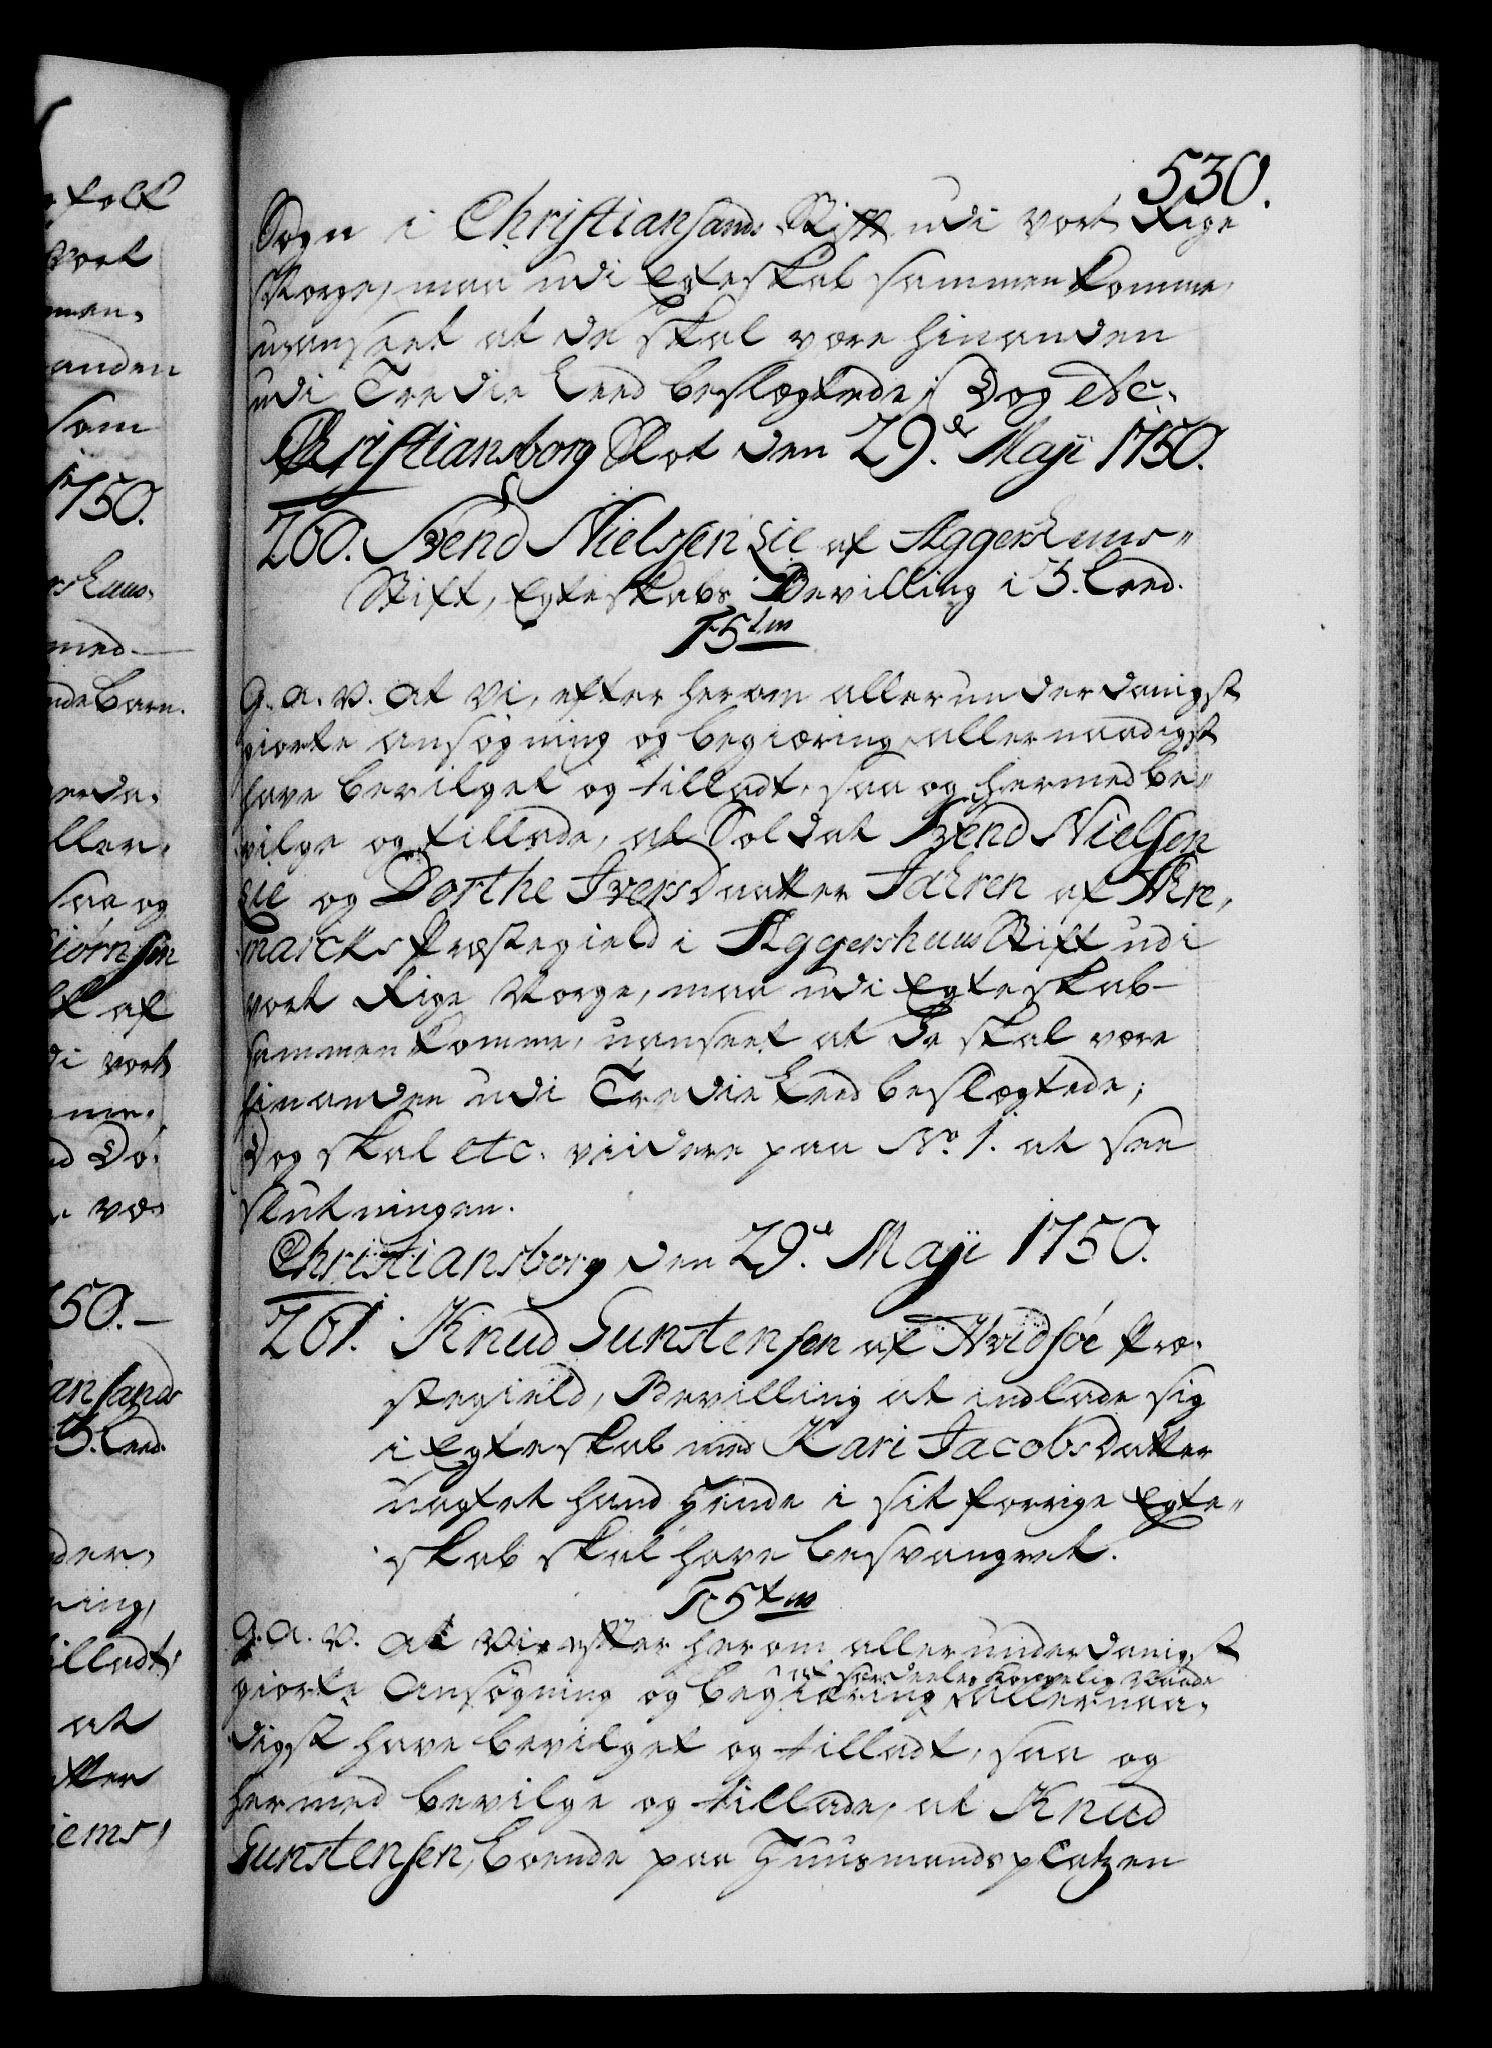 530.
Sogn i Christiansands Stift udi vort Rige
Norge, maa udi Egteskab sammenkomme,
uanseet at de skal være hinanden
udi Tredie Leed beslægtede; Dog etc.
Christiansborg Slot den 29de Maji 1750.
260. Svend Nielssen Lie af Aggershuus-
Stift, Egteskabs Bevilling i 3. Leed.
F 5tus
G. A. V. At Vi, efter herom allerunderdanigst
giorte ansøgning og begiæring, allernaadigst
have bevilget og tilladt, saa og hermed be-
vilge og tillade, at Soldat Svend Nielsen
Lie og Dorthe Iversdaatter Jahren af
marcks Præstegield i Aggershuus Stift udi
vort Rige Norge, maa udi Egteskab
sammenkomme, uanseet at De skal være
hinanden udi Tredie Leed beslægtede;
Dog skal etc. viidere paa No. 1. at see
slutningen.
Christiansborg den 29de Maji 1750.
261. Knud Gunstensen af Hvidsøe Præ-
stegield, Bevilling at indlade sig
i Egteskab med Kari Jacobsdatter
uagtet hand hende i sit forrige Egte-
skab skal have besvangret.
F 5tus
G. A. V. At Vi, efter herom allerunderdanigst
af særdeeles Kongelig Naade
giorte Ansøgning og begiæring, allernaa-
digst have bevilget og tilladt, saa og
hermed bevilge og tillade, at Knud
Gunstensen, boende paa Huusmandspladzen
folk
vort
men,
anden
som
1750.
huus-
med
barn.
nda-
ller-
saa og
iørnsen
af
di vort
me,
Dø-
væ-
50.
ansands
3. Leed.
der,
ning,
illadt,
at
tter
iems,